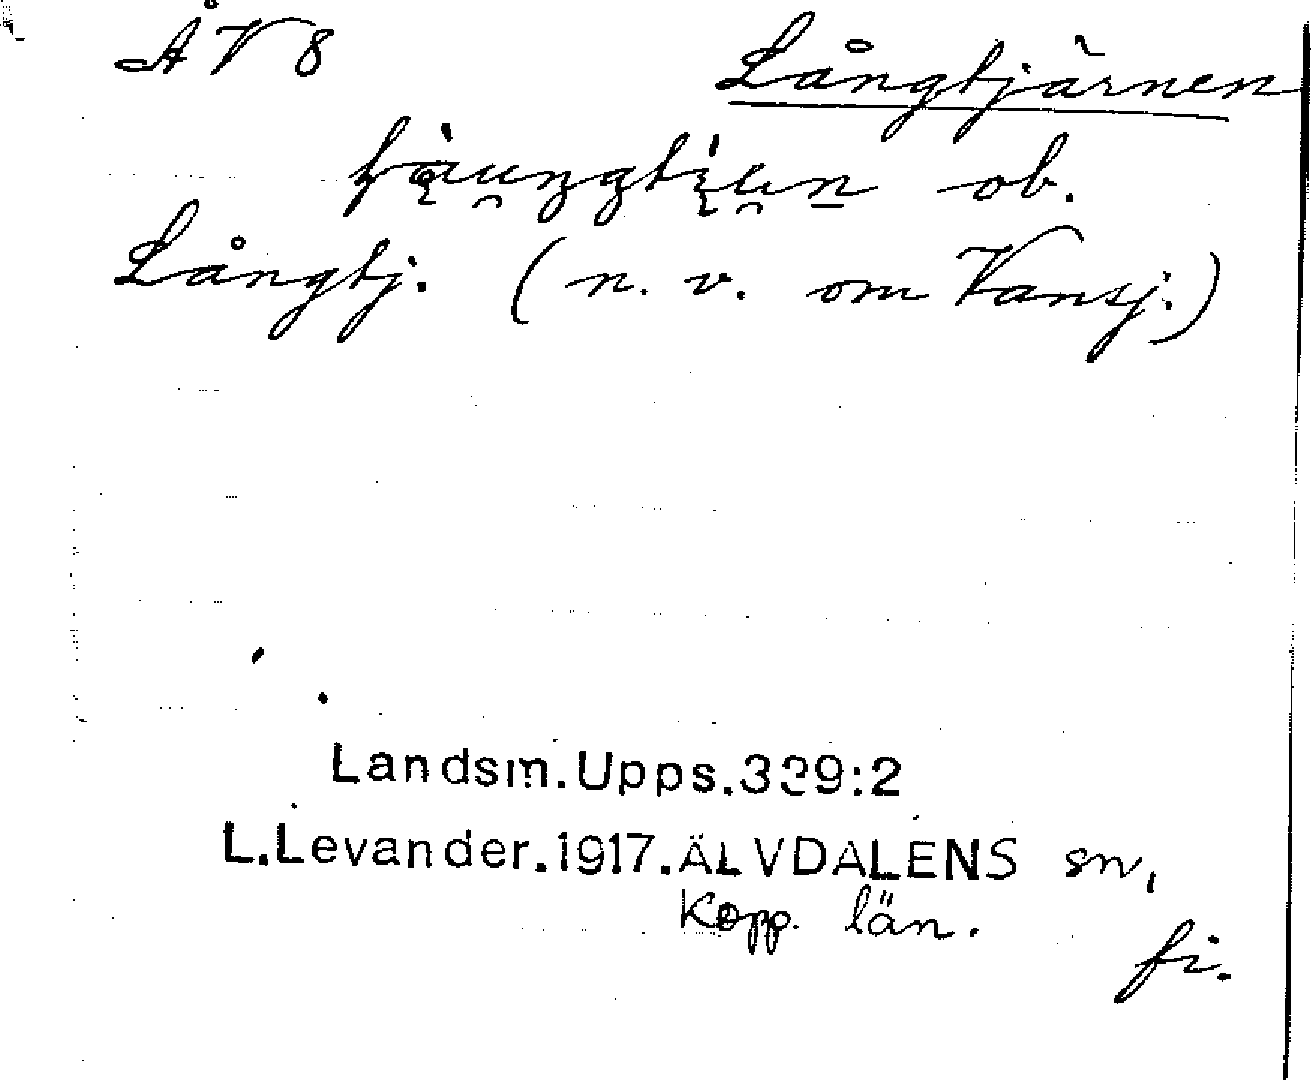 ÅV 8
Långtjärnen
ob.
Långtj. (n. v. om Vansj.)
Landsm.Upps.339:2
L.Levander.1917.ÄLVDALENS sn,
Kopp. län.
fi.